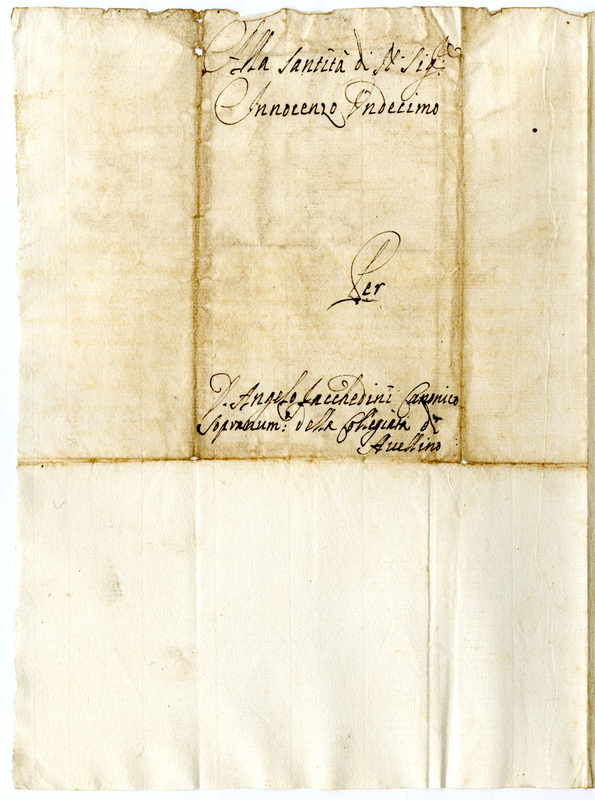 Alla Santità di N: Sig.re
Innocenzo Undecimo
Per
D. Angelo Iacchedini Canonico
Sopranum: della Collegiata di
Avellino